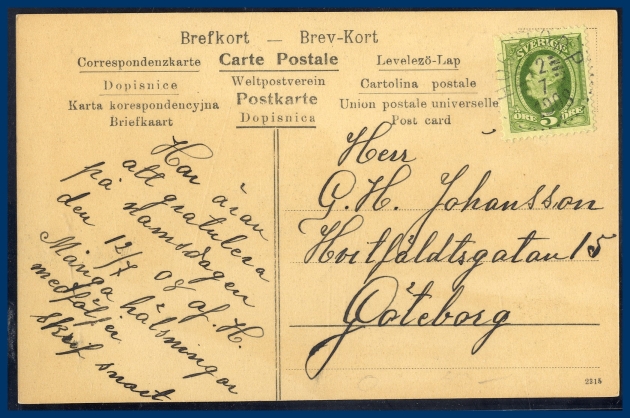 Brefkort — Brev-Kort
Correspondenzkarte Carte Postale Levelezö-Lap
Dopisnice Weltpostverein Cartolina postale
Karta korespondencyjna Postkarte Union postale universelle
Briefkaart Dopisnica Post card
SVERIGE
5
ÖRE ÖRE
Har äran
att gratulera
på namsdagen
den 12/7 08 af H.
Många hälsningar
medföljer
Skrif snart
Herr
G. H. Johansson
Hvitfäldtsgatan 15
Göteborg
2915